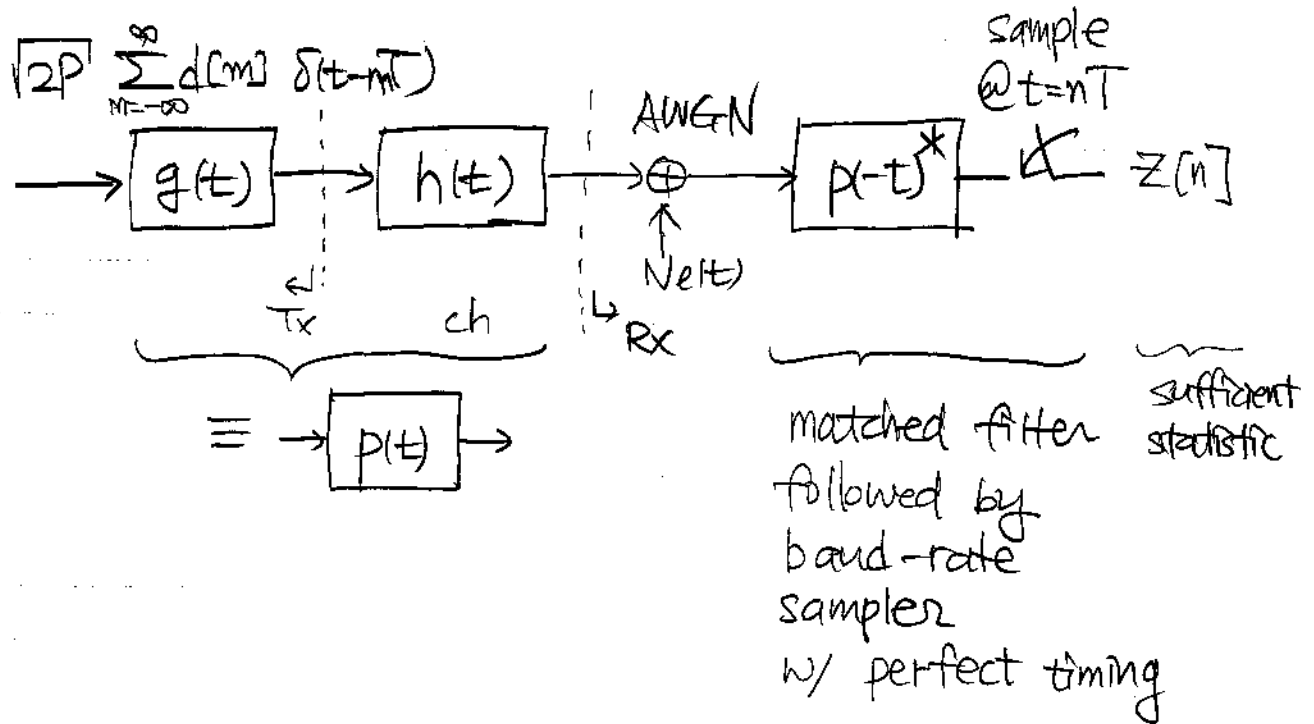 √2P ∑_{m=-∞}^{∞} d[m] δ(t-mT)
sample
@ t=nT
AWGN
g(t)
h(t)
⊕
p(-t)*
Z[n]
Ne(t)
Tx
ch
Rx
≡ p(t)
matched filter
followed by
baud-rate
sampler
w/ perfect timing
sufficient
statistic